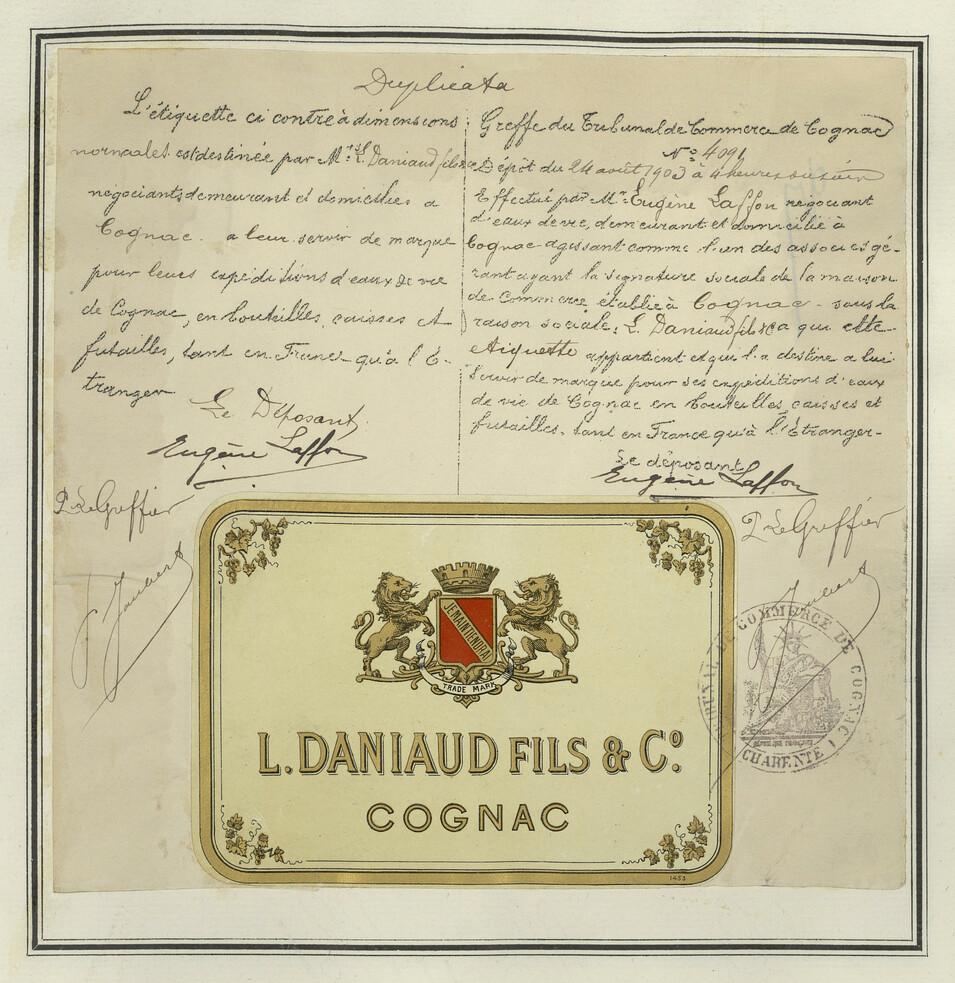 Duplicata
L'étiquette ci contre à dimensions
normales est destinée par M.rs L. Daniaud fils & Co
négociants demeurant et domiciliés a
Cognac a leur servir de marque
pour leurs expéditions d'eaux de vie
de Cognac, en bouteilles, caisses et
futailles, tant en France qu'à l'É-
tranger
Le Déposant
Eugène Laffon
P. Le Greffier
Greffe du Tribunal de Commerce de Cognac
No: 4091
Dépôt du 24 août 1903 à 4 heures du soir
Effectué par Mr. Eugène Laffon négociant
d'eaux de vie, demeurant et domicilié à
Cognac agissant comme l'un des associés gé-
rant ayant la signature sociale de la maison
de Commerce établie à Cognac sous la
raison sociale, L. Daniaud fils & Co a qui cette
étiquette appartient et qui l'a destine a lui
servir de marque pour ses expéditions d'eaux
de vie de Cognac en bouteilles caisses et
futailles, tant en France qu'à l'Étranger-
Le déposant
Eugène Laffon
P. Le Greffier
JE MAINTIENDRAI
TRADE MARK
L. DANIAUD FILS & Co.
COGNAC
1453
TRIBUNAL DE COMMERCE DE COGNAC
CHARENTE